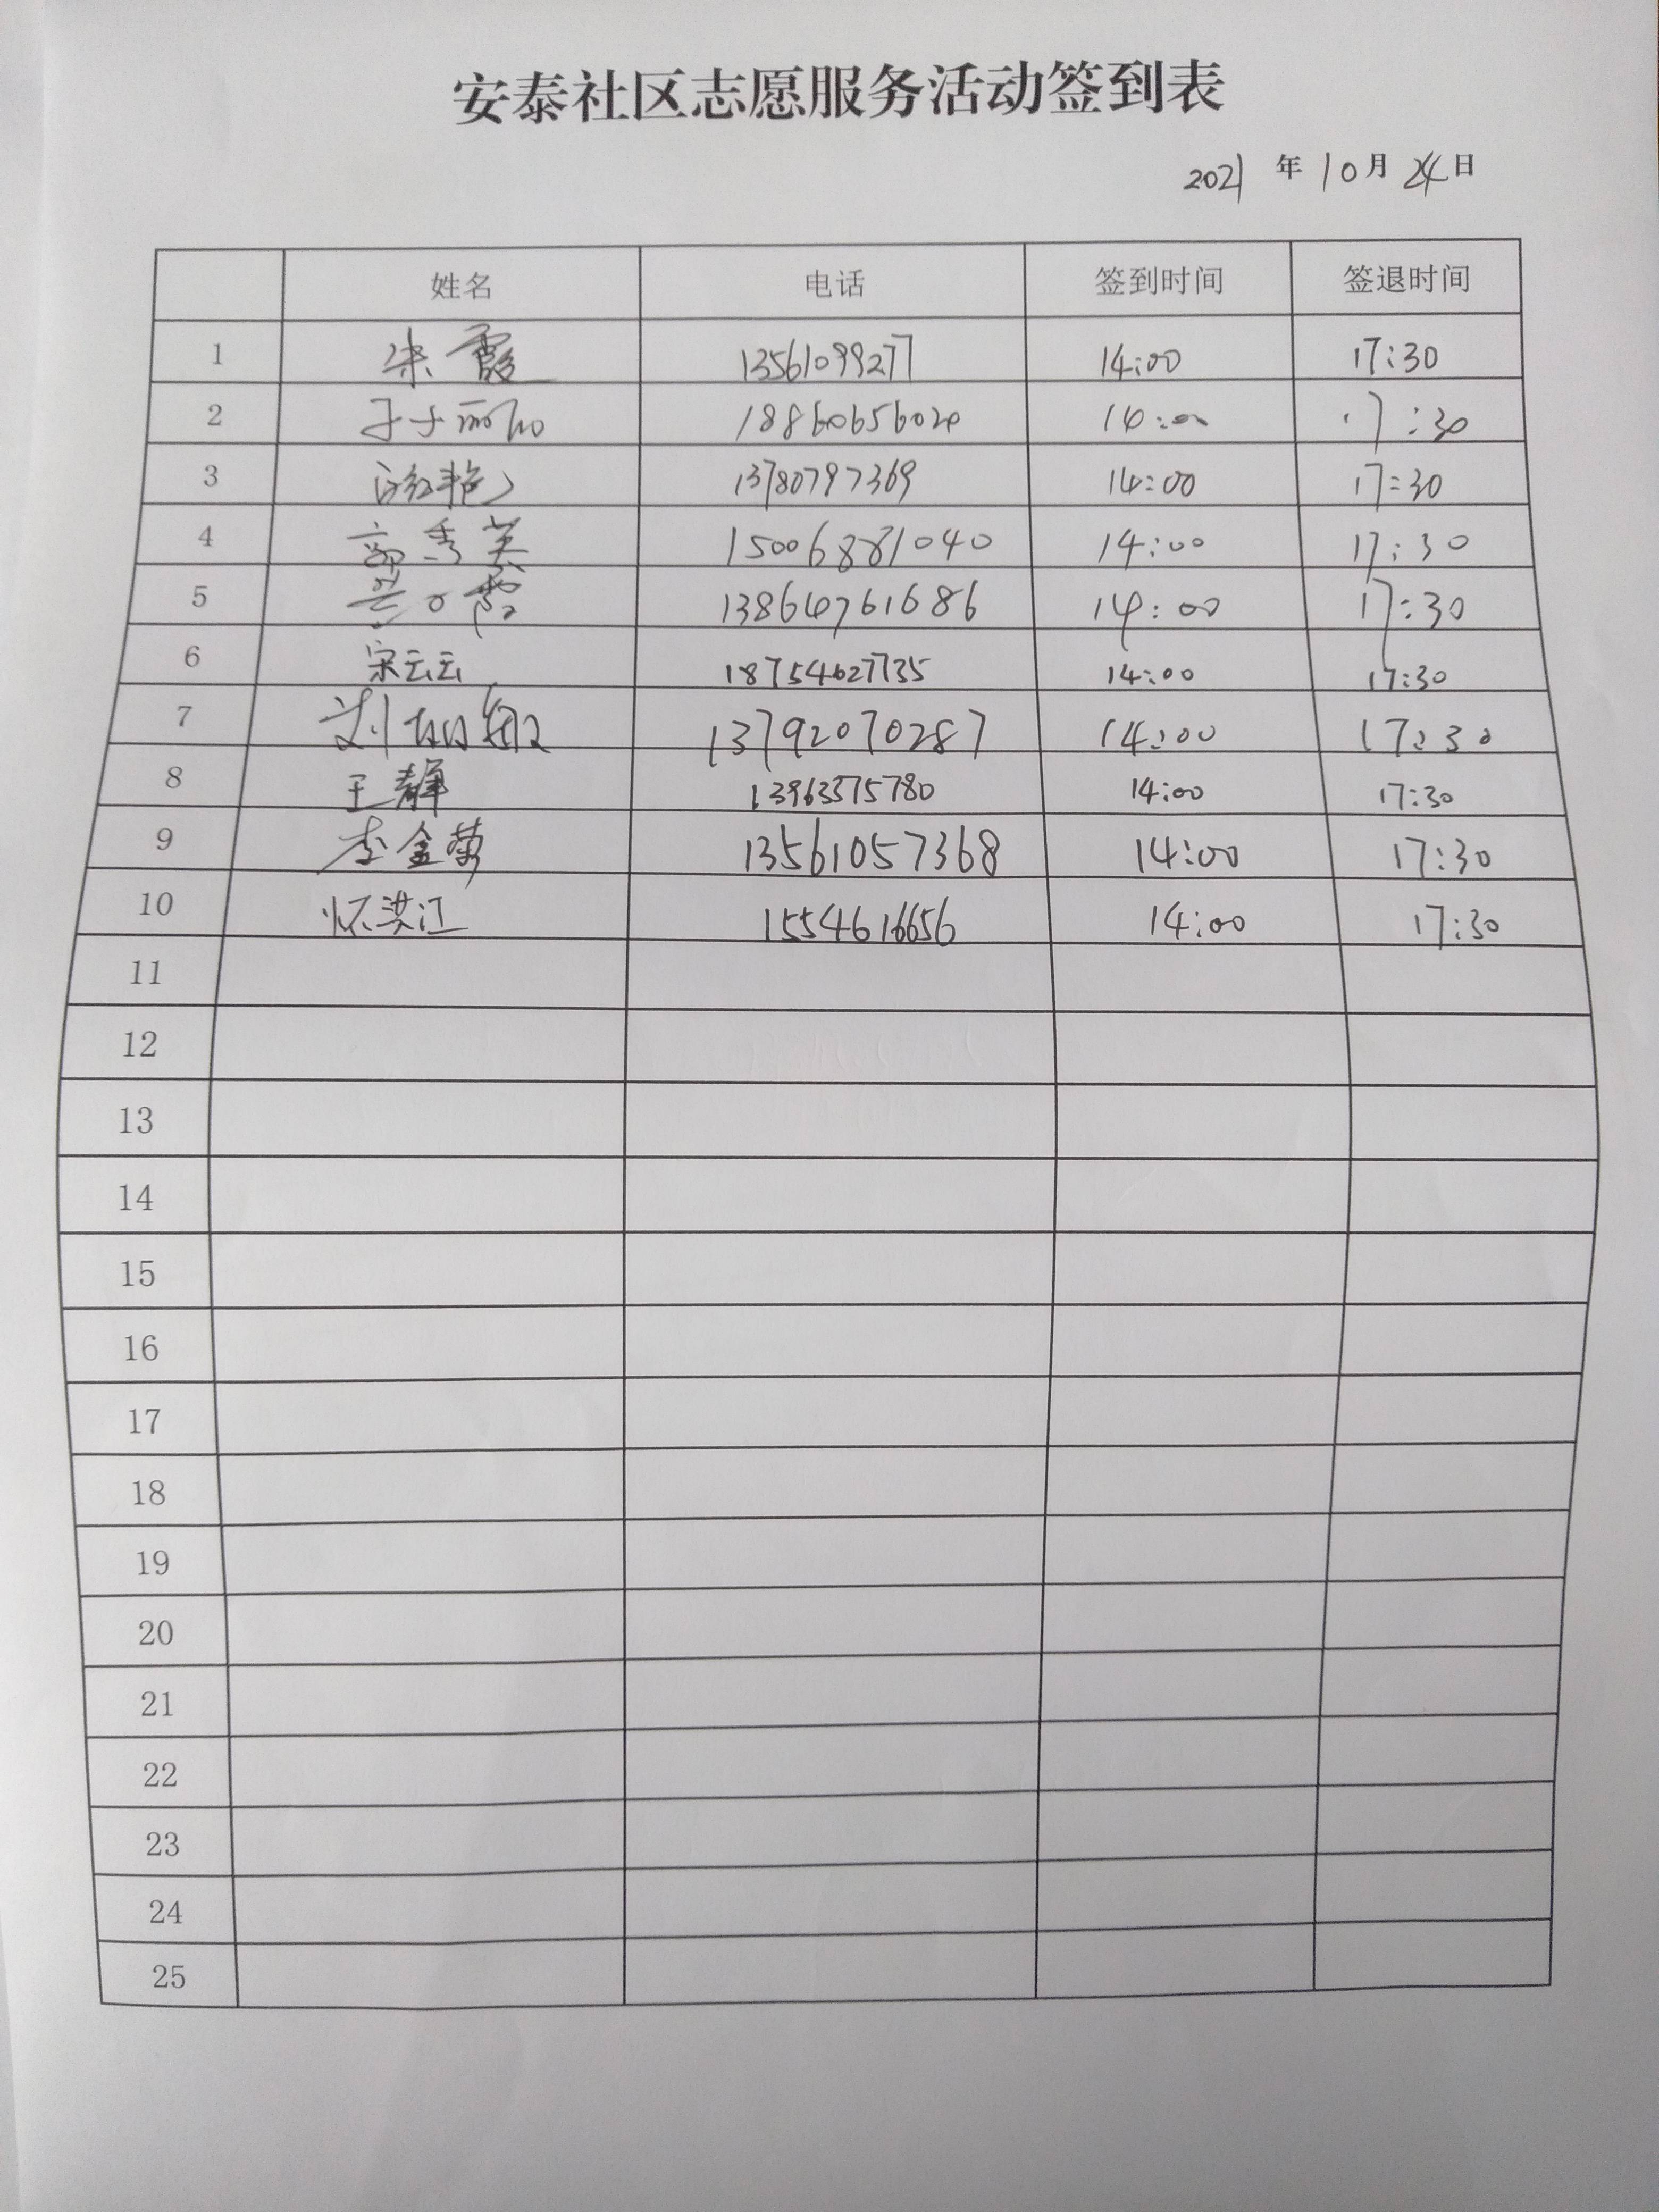 安泰社区志愿服务活动签到表
2021 年 10 月 24 日
姓名 电话 签到时间 签退时间
1 朱霞 13561099277 14:00 17:30
2 18860656020 14:00 17:30
3 13780797369 14:00 17:30
4 郭秀英 15006881040 14:00 17:30
5 13864761686 14:00 17:30
6 宋云云 18754627735 14:00 17:30
7 刘 13792070287 14:00 17:30
8 王静 13963575780 14:00 17:30
9 李金菊 13561057368 14:00 17:30
10 怀洪江 1554616656 14:00 17:30
11
12
13
14
15
16
17
18
19
20
21
22
23
24
25